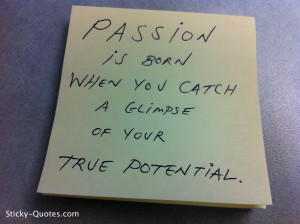 PASSION
IS BORN
WHEN YOU CATCH
A GLIMPSE
OF YOUR
TRUE POTENTIAL.
Sticky-Quotes.com